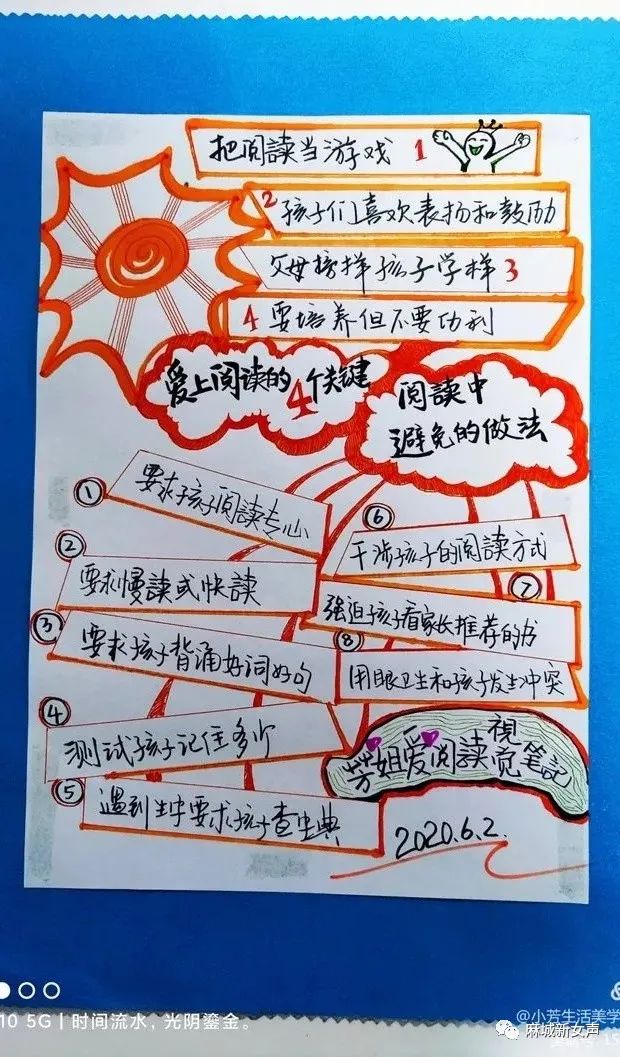 把阅读当游戏 1
2 孩子们喜欢表扬和鼓励
父母榜样孩子学样 3
4 要培养但不要功利
爱上阅读的4个关键
阅读中
避免的做法
① 要求孩子阅读专心
② 要求慢读或快读
③ 要求孩子背诵好词好句
④ 测试孩子记住多少
⑤ 遇到生字要求孩子查字典
⑥ 干涉孩子的阅读方式
⑦ 强迫孩子看家长推荐的书
⑧ 用眼卫生和孩子发生冲突
芳姐爱阅读視觉笔記
2020.6.2.
@小芳生活美学
10 5G | 时间流水，光阴鎏金。
麻城新女声